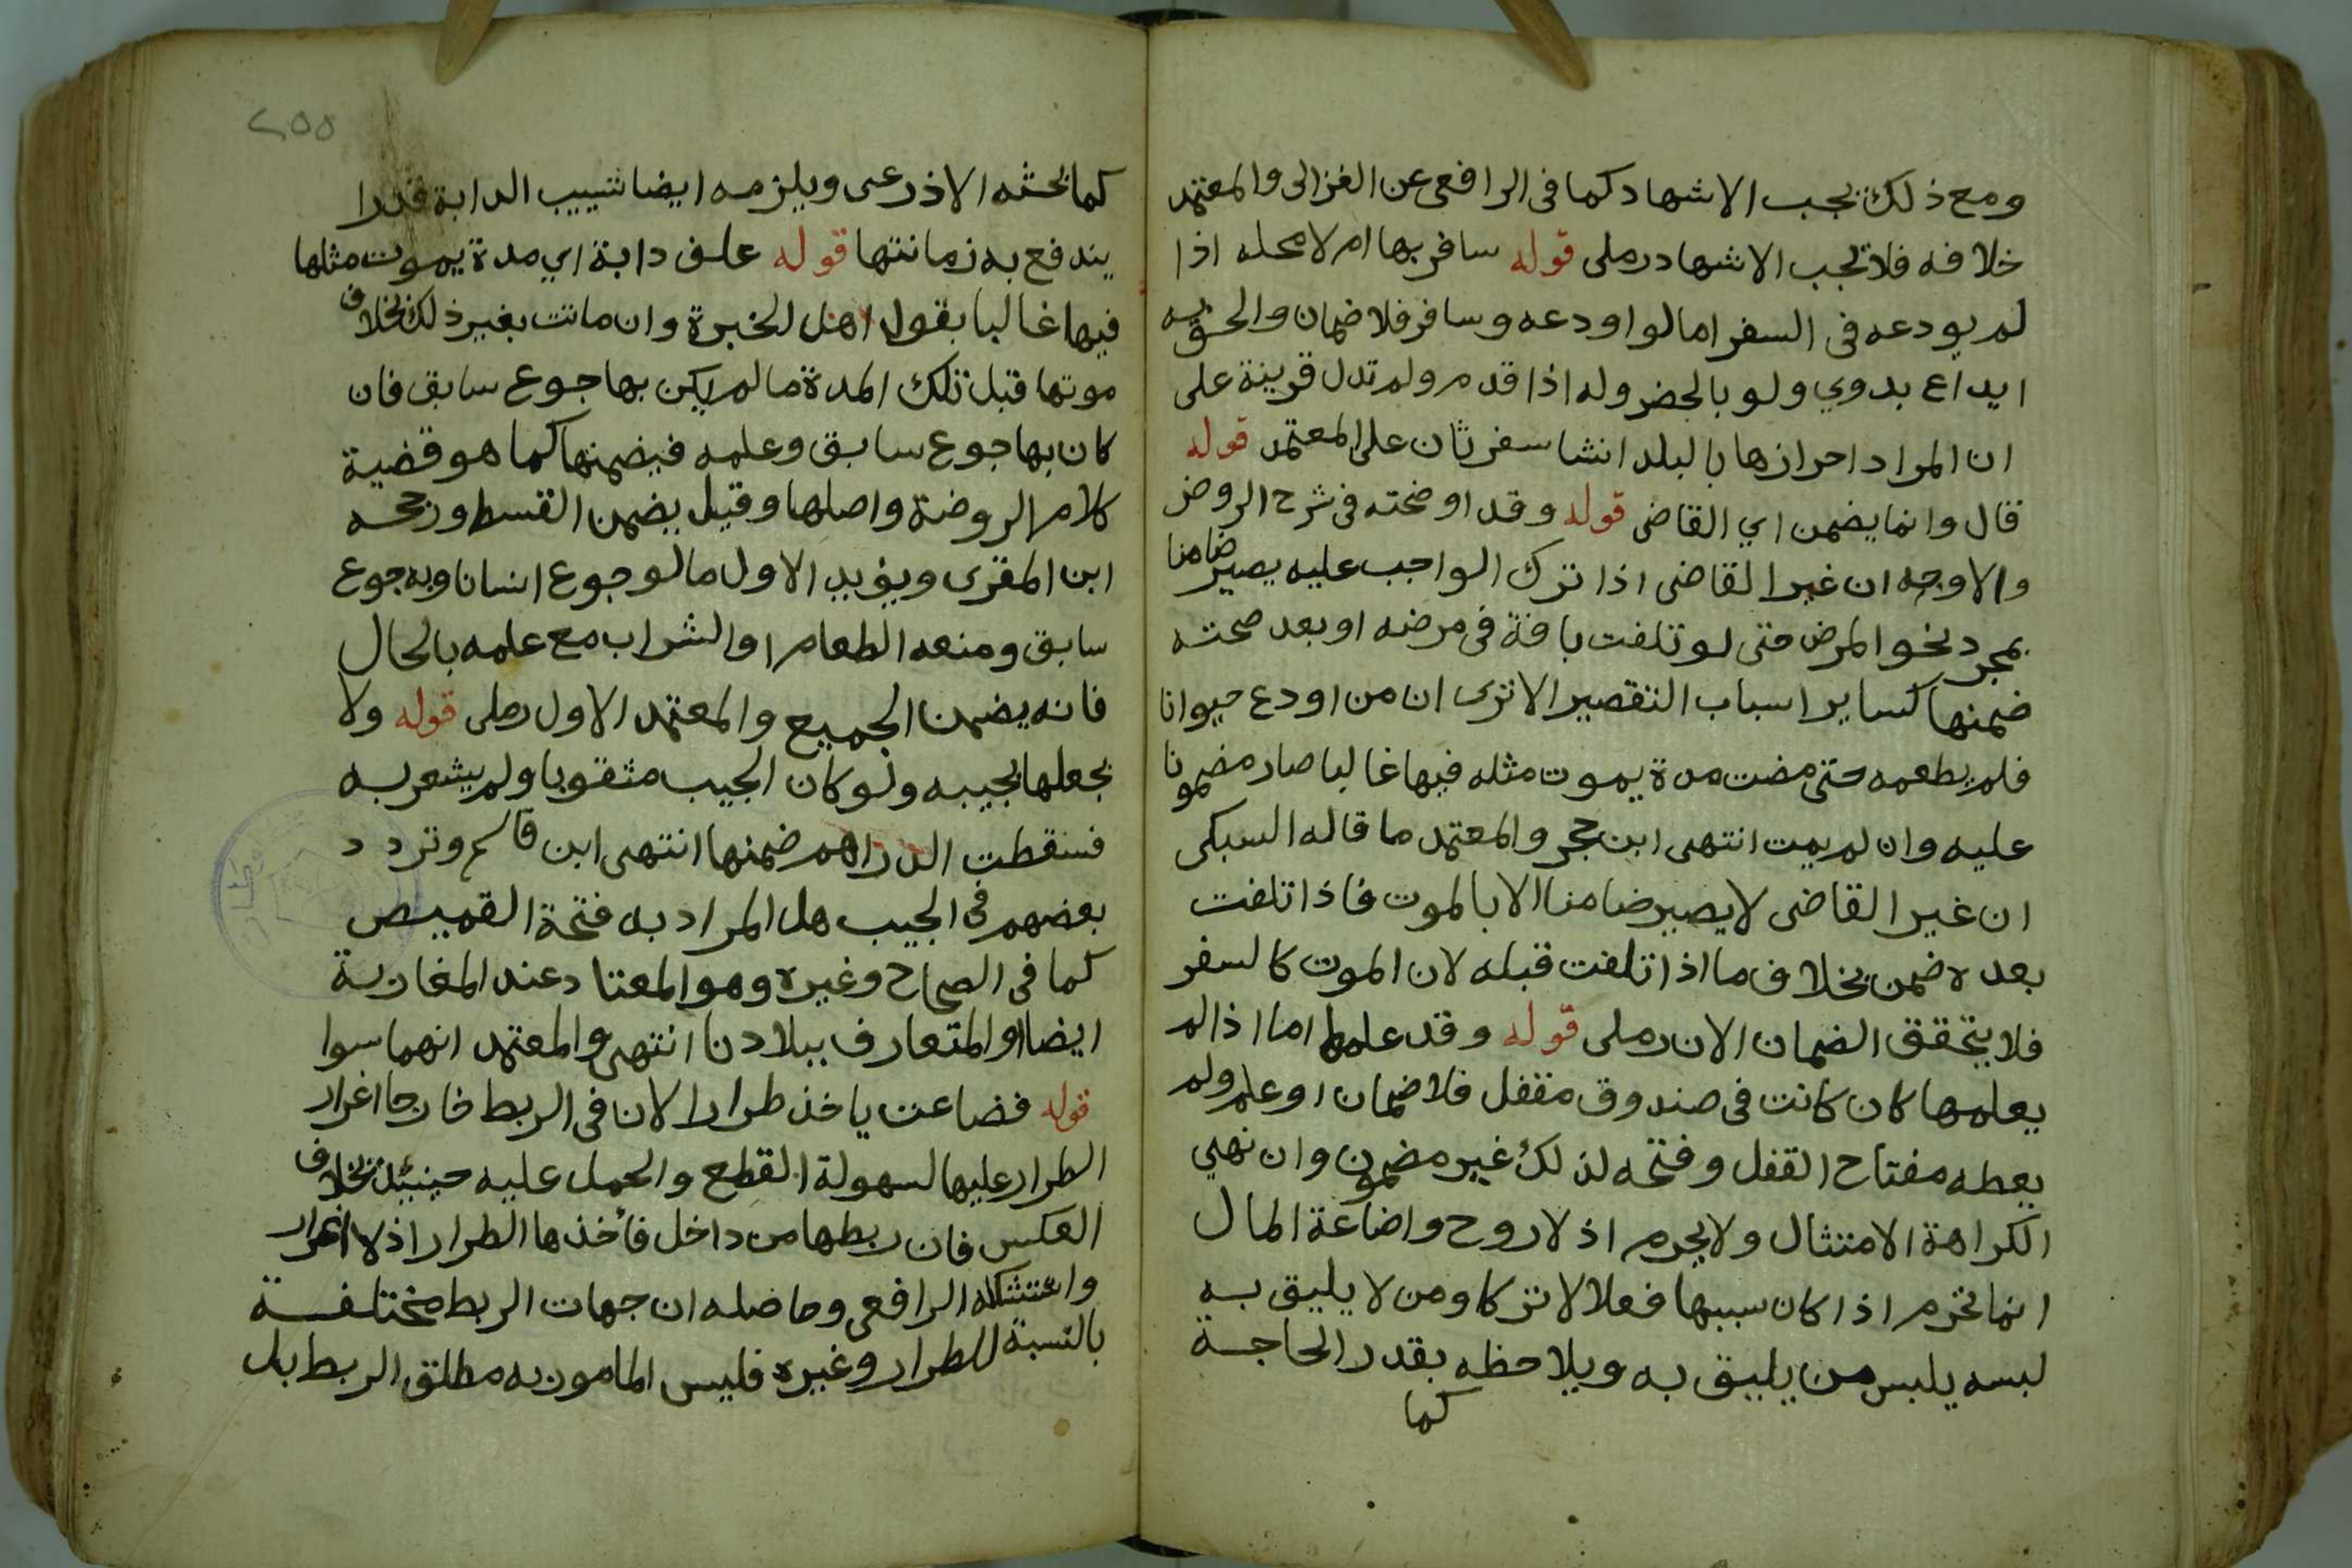 ومع ذلك يجب الاشهاد كما فى الرافعى عن الغزالى والمعتمد
خلافه فلا تجب الاشهاد رملى قوله سافر بها ام لا محله اذا
لم يودعه فى السفر اما لو اودعه وسافر فلا ضمان والحق به
ايداع بدوي ولو بالحضر وله اذا قدم ولم تدل قرينة على
ان المراد احرازها بالبلد انشا سفر ثان على المعتمد قوله
قال وانما يضمن اي القاضى قوله وقد اوضحته فى شرح الروض
والاوجه ان غير القاضى اذا ترك الواجب عليه يصير ضامنا
بمجرد نحو المرض حتى لو تلفت بافة فى مرضه او بعد صحته
ضمنها كساير اسباب التقصير الا ترى ان من اودع حيوانا
فلم يطعمه حتى مضت مدة يموت مثله فيها غالبا صار مضمونا
عليه وان لم يمت انتهى ابن حجر والمعتمد ما قاله السبكى
ان غير القاضى لا يصير ضامنا الا بالموت فاذا تلفت
بعده ضمن بخلاف ما اذا تلفت قبله لان الموت كالسفر
فلا يتحقق الضمان الا ن رملى قوله وقد علمها اما اذا لم
يعلمها كان كانت فى صندوق مقفل فلا ضمان او علم ولم
يعطه مفتاح القفل وفتحه لذلك غير مضمون وان نهي
الكراهة الامتثال ولا يحرم اذ لا روح واضاعة المال
انما تحرم اذا كان سببها فعلا لا تركا ومن لا يليق به
لبسه يلبس من يليق به ويلاحظه بقدر الحاجة
كما
٢٥٥
كما بحثه الاذرعى ويلزمه ايضا تسييب الدابة قدرا
يندفع به زمانتها قوله علف دابة اي مدة يموت مثلها
فيها غالبا بقول اهل الخبرة وان ماتت بغير ذلك بخلاف
موتها قبل تلك المدة ما لم يكن بها جوع سابق فان
كان بها جوع سابق وعلمه فيضمنها كما هو قضية
كلام الروضة واصلها وقيل يضمن القسط ورجحه
ابن المقرى ويؤيد الاول ما لو جوع انسانا وبه جوع
سابق ومنعه الطعام او الشراب مع علمه بالحال
فانه يضمن الجميع والمعتمد الاول رملى قوله ولا
بجعلها بجيبه ولو كان الجيب مثقوبا ولم يشعر به
فسقطت الدراهم ضمنها انتهى ابن قاسم وتردد
بعضهم فى الجيب هل المراد به فتحة القميص
كما فى الصحاح وغيره وهو المعتاد عند المغاربة
ايضا او المتعارف ببلادنا انتهى والمعتمد انهما سوا
قوله فضاعت ياخذ طرارا لان فى الربط خارجا اغرار
الطرار عليها لسهولة القطع والحمل عليه حينئذ بخلاف
العكس فان ربطها من داخل فأخذها الطرار اذ لا اغرار
واستشكله الرافعى وحاصله ان جهات الربط مختلفة
بالنسبة للطرار وغيره فليس المامور به مطلق الربط بل